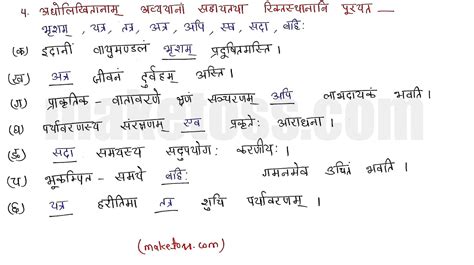 4. अधोलिखितानाम् अव्ययानां सहायतया रिक्तस्थानानि पूरयत —
भृशम् , यत्र , तत्र , अत्र , अपि , एव , सदा , बहिः
(क) इदानीं वायुमण्डलं भृशम् प्रदूषितमस्ति ।
(ख) अत्र जीवनं दुर्वहम् अस्ति ।
(ग) प्राकृतिक - वातावरणे क्षणं सञ्चरणम् अपि लाभदायकं भवति ।
(घ) पर्यावरणस्य संरक्षणम् एव प्रकृतेः आराधना ।
(ङ) सदा समयस्य सदुपयोगः करणीयः ।
(च) भूकम्पित - समये बहिः गमनमेव उचितं भवति ।
(छ) यत्र हरीतिमा तत्र शुचि पर्यावरणम् ।
(maketoss.com)
maketoss.com